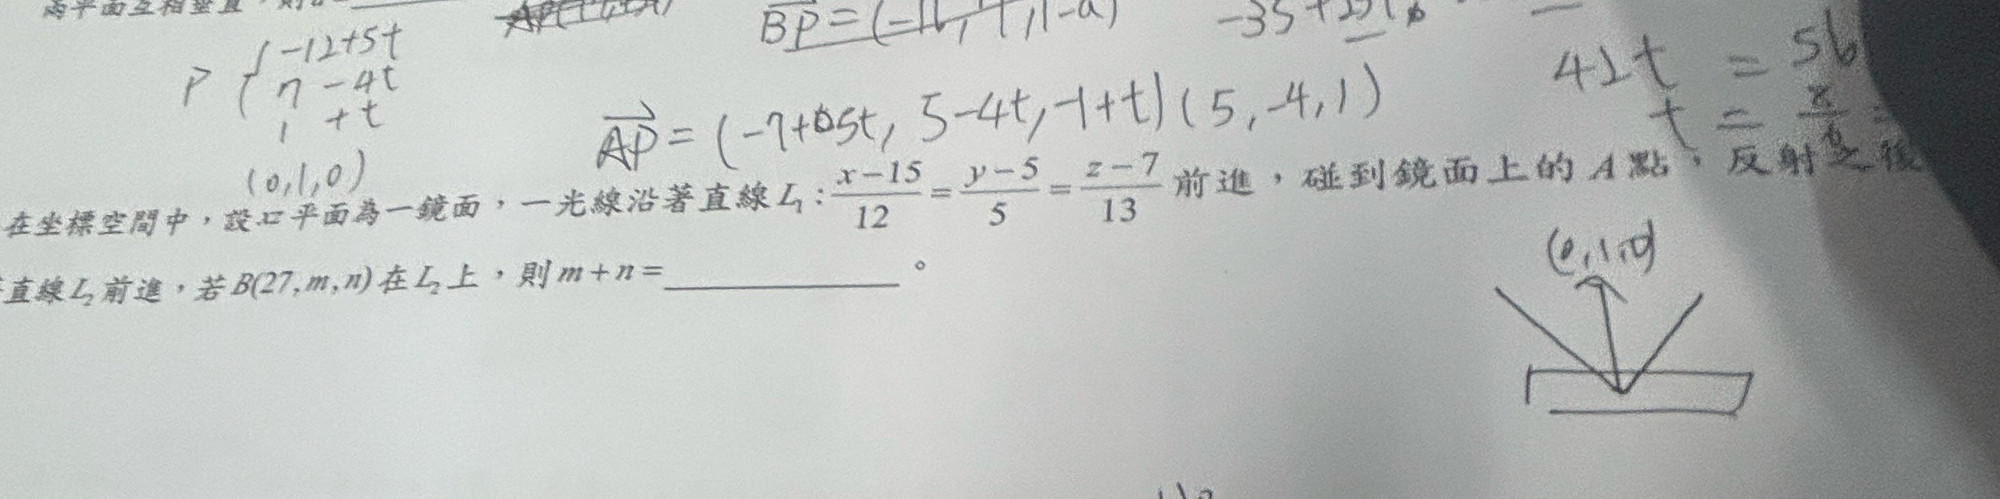 兩平面互相垂直，則
BP = (-12, 7, 1-a)
-12+5t
P { 7 -4t
1 +t
42t = 56
AP = (-7+5t, 5-4t, -1+t) (5, -4, 1)
(0,1,0)
在坐標空間中，設xz平面為一鏡面，一光線沿著直線L₁: (x-15)/12 = (y-5)/5 = (z-7)/13 前進，碰到鏡面上的A點，反射之後
直線L₂前進，若B(27,m,n)在L₂上，則m+n=________。
(0,1,0)